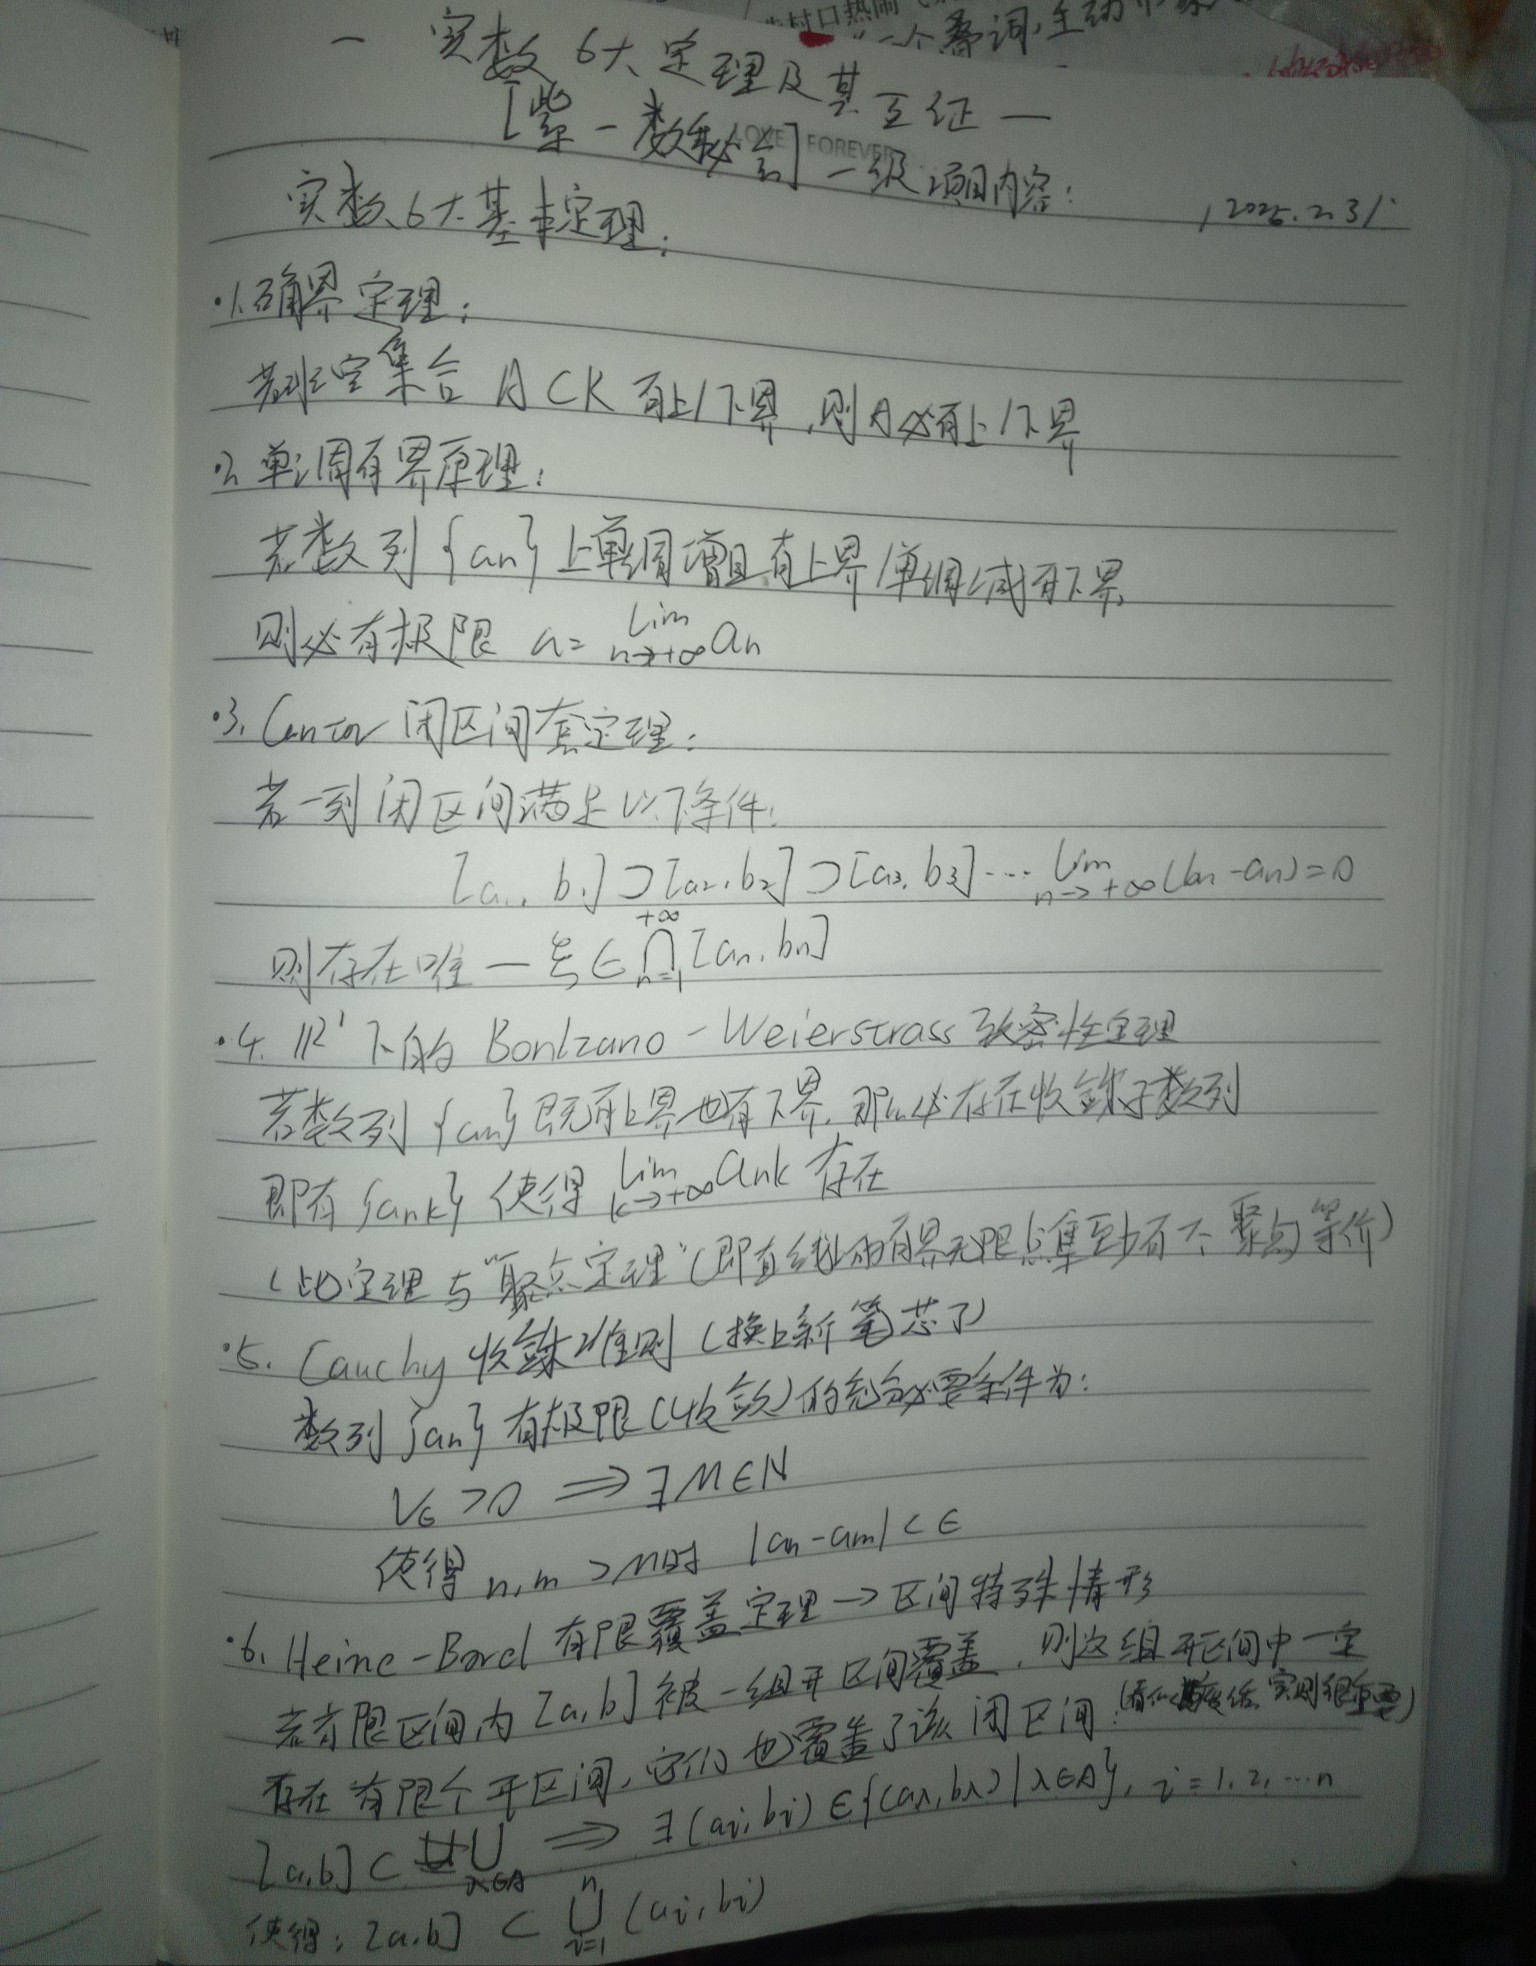 一 实数6大定理及其互证一
[紫一数秘宝] 一级项目内容:
LOVE FOREVER
实数6大基本定理: ,2025.2.31
·1.确界定理:
若非空集合 A⊂R 有上/下界,则A必有上/下界
·2.单调有界原理:
若数列{an}上单调增且有上界/单调减有下界,
则必有极限 a= lim n→+∞ an
·3. Cantor 闭区间套定理:
若一列闭区间满足以下条件:
[a1, b1]⊃[a2,b2]⊃[a3, b3]… lim n→+∞ (bn-an)=0
则存在唯一 ξ∈ ⋂ n=1 +∞ [an, bn]
·4. R¹下的 Bonlzano-Weierstrass 致密性定理
若数列{an}既有上界也有下界,那么必存在收敛子数列
即有{ank} 使得 lim k→+∞ ank 存在
(此定理与"聚点定理"(即直线上的有界无限点集至少有一个聚点)等价)
·5. Cauchy 收敛准则 (换上新笔芯了)
数列{an}有极限(收敛)的充分必要条件为:
∀ε>0 ⟹ ∃M∈N
使得 n,m >M时 |an-am|<ε
·6. Heine-Borel 有限覆盖定理→区间特殊情形
若有限区间内[a,b]被一组开区间覆盖,则这组开区间中一定
存在有限个开区间,它们也覆盖了该闭区间: 实则很重要)
[a,b]⊂ ⋃ λ∈A ⟹ ∃(ai,bi)∈{(aλ,bλ)|λ∈A}, i=1,2,…n
使得: [a,b] ⊂ ⋃ i=1 n (ai,bi)